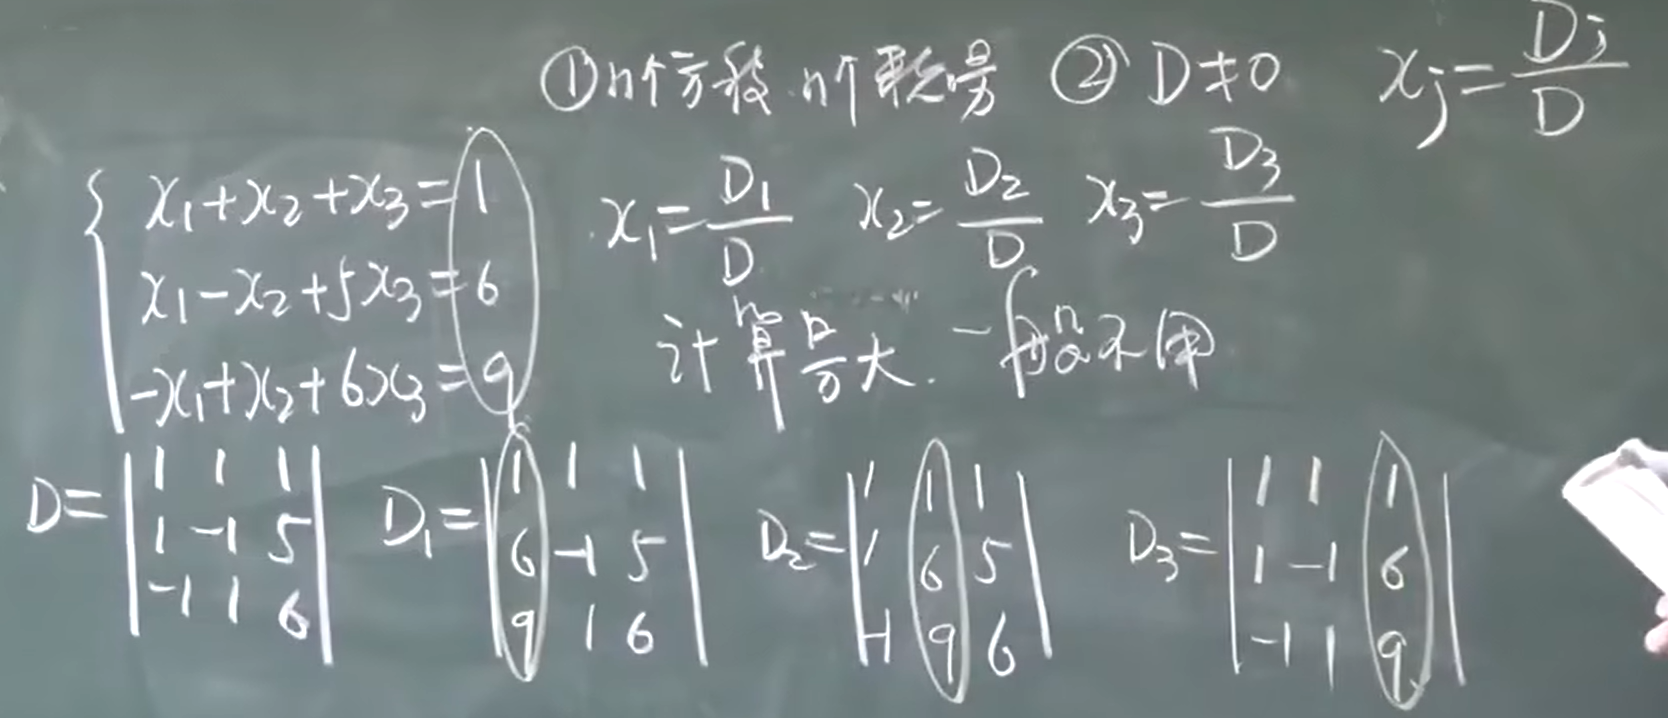 ①n个方程.n个未知量 ②D≠0 xj=Dj/D
{x1+x2+x3=1
x1-x2+5x3=6
-x1+x2+6x3=9
x1=D1/D x2=D2/D x3=D3/D
计算量大.一般不用
D=|1 1 1|
|1 -1 5|
|-1 1 6|
D1=|1 1 1|
|6 -1 5|
|9 1 6|
D2=|1 1 1|
|1 6 5|
|-1 9 6|
D3=|1 1 1|
|1 -1 6|
|-1 1 9|